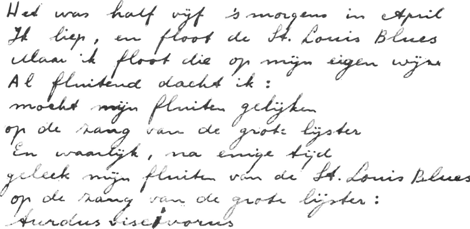 Het was half vijf 's morgens in April
Ik liep, en floot de St. Louis Blues
Maar ik floot die op mijn eigen wijze
Al fluitend dacht ik:
mocht mijn fluiten gelijken
op de zang van de grote lijster
En waarlijk, na enige tijd
geleek mijn fluiten van de St. Louis Blues
op de zang van de grote lijster:
turdus viscivorus